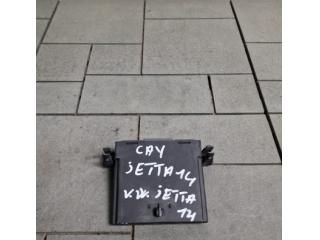 CAY
JETTA 14
V.W. JETTA
14